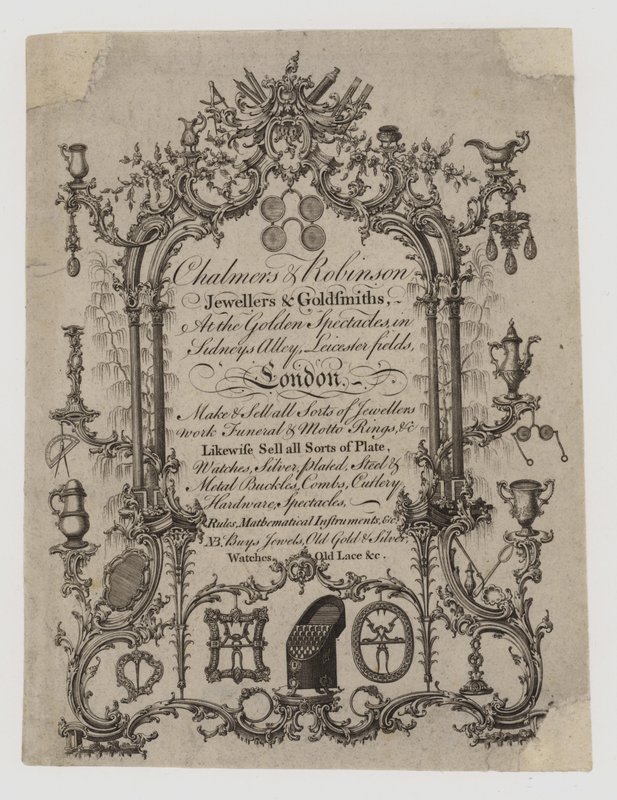 Chalmers & Robinson
Jewellers & Goldſmiths,
At the Golden Spectacles, in
Sidneys Alley, Leicester fields,
London,
Make & Sell all Sorts of Jewellers
work Funeral & Motto Rings, &c
Likewiſe Sell all Sorts of Plate,
Watches, Silver, plated, Steel &
Metal Buckles, Combs, Cutlery,
Hardware, Spectacles,
Rules, Mathematical Inſtruments, &c.
NB. Buys Jewels, Old Gold & Silver,
Watches, Old Lace &c.